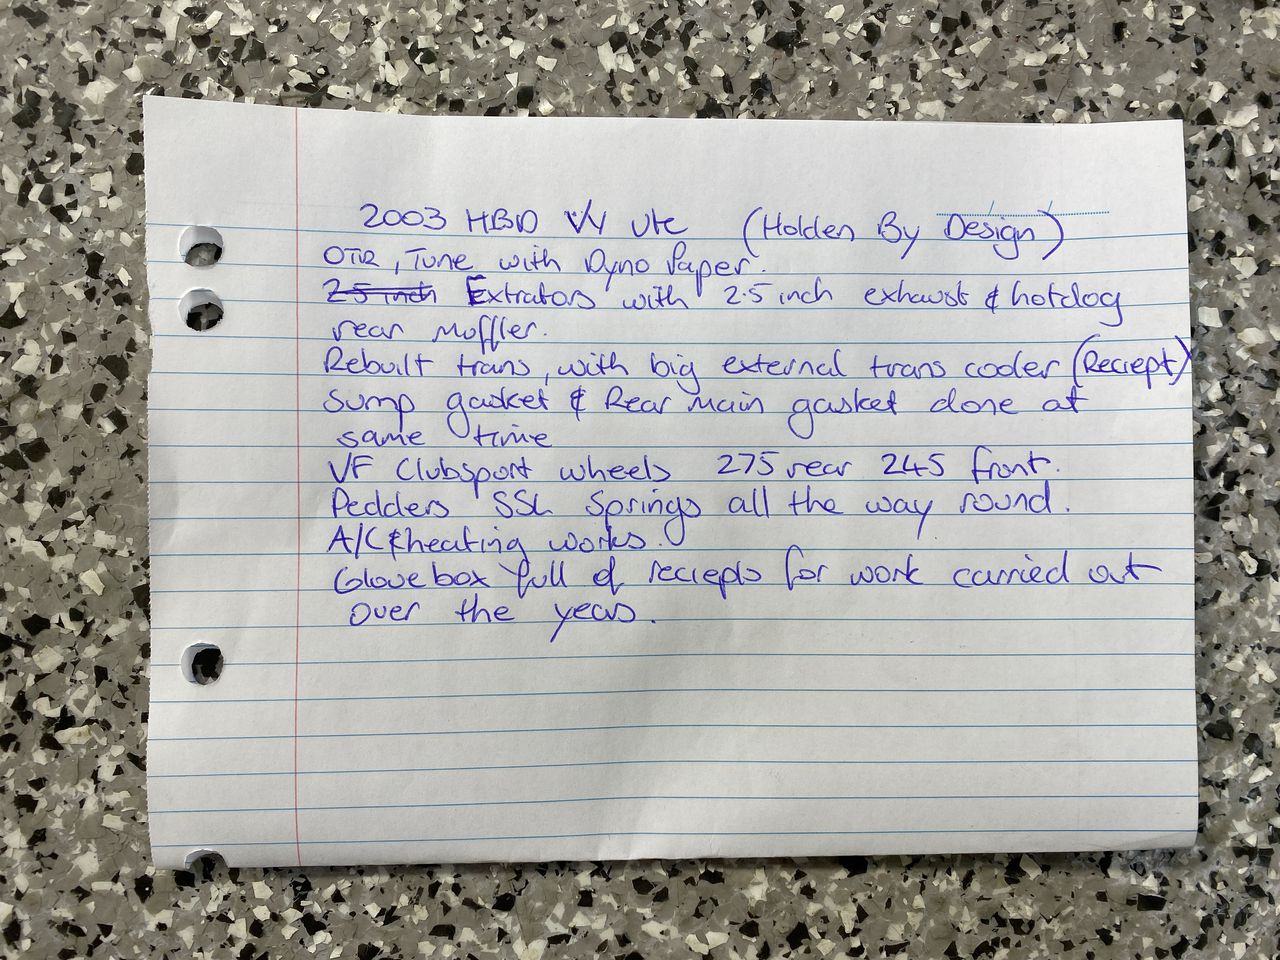 2003 HBD VY Ute (Holden By Design)
OTR, Tune with Dyno Paper.
2.5 inch Extrators with 2.5 inch exhaust & hotdog
rear Muffler.
Rebuilt trans, with big external trans cooler (Reciept)
Sump gasket & Rear Main gasket done at
same time
VF Clubsport wheels 275 rear 245 front.
Pedders SSL Springs all the way round.
A/C & heating works.
Glovebox full of reciepts for work carried out
over the years.